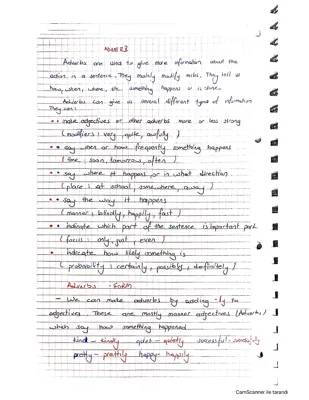 ADVERBS
Adverbs are used to give more information about the
action in a sentence. They mainly modify verbs. They tell us
how, when, where, etc. something happens or is done.
Adverbs can give us several different types of information
They can:
make adjectives or other adverbs more or less strong
(modifiers: very, quite, awfully)
say when or how frequently something happens
(time: soon, tomorrow, often)
say where it happens or in what direction
(place: at school, somewhere, away)
say the way it happens
(manner: happily, fast)
indicate which part of the sentence is important part
(focus: only, just, even)
indicate how likely something is
(probability: certainly, possibly, definitely)
Adverbs: Form
- We can make adverbs by adding -ly to
adjectives. These are mostly manner adjectives (Adverbs)
which say how something happened
kind - kindly quiet - quietly successful -
pretty - prettily happy - happily
CamScanner ile tarandı